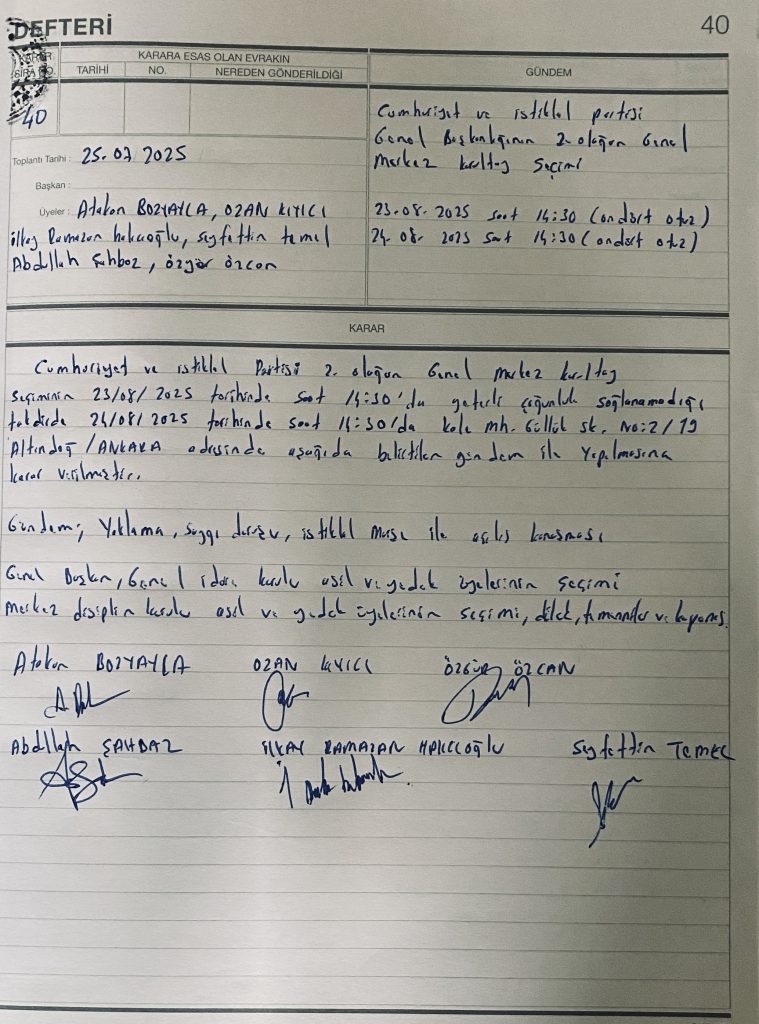 DEFTERİ
40
KARAR SIRA NO.
KARARA ESAS OLAN EVRAKIN
TARİHİ NO. NEREDEN GÖNDERİLDİĞİ
GÜNDEM
40
Cumhuriyet ve istiklal partisi
Genel Başkanlığının 2. olağan Genel
Merkez kurultay Seçimi
23.08.2025 saat 14:30 (ondört otuz)
24.08.2025 saat 14:30 (ondört otuz)
Toplantı Tarihi : 25.07 2025
Başkan :
Üyeler : Atakan BOZYAYLA, OZAN KIYICI
ilkay Ramazan hakçıoğlu, seyfettin temel
Abdullah Şahbaz, özgür özcan
KARAR
Cumhuriyet ve istiklal Partisi 2. olağan Genel Merkez kurultay
Seçiminin 23/08/2025 tarihinde saat 14:30'da yeterli çoğunluk sağlanamadığı
takdirde 24/08/2025 tarihinde saat 14:30'da kale mh. Güllük sk. No:2/19
Altındağ/ANKARA adresinde aşağıda belirtilen gündem ile Yapılmasına
karar verilmiştir.
Gündem; Yoklama, Saygı duruşu, istiklal marşı ile açılış konuşması
Genel Başkan, Genel idare kurulu asil ve yedek üyelerinin seçimi
Merkez disiplin kurulu asil ve yedek üyelerinin seçimi, dilek, temenniler ve kapanış.
Atakan BOZYAYLA OZAN KIYICI ÖZGÜR ÖZCAN
Abdullah ŞAHBAZ İLKAY RAMAZAN HAKÇIOĞLU Seyfettin TEMEL